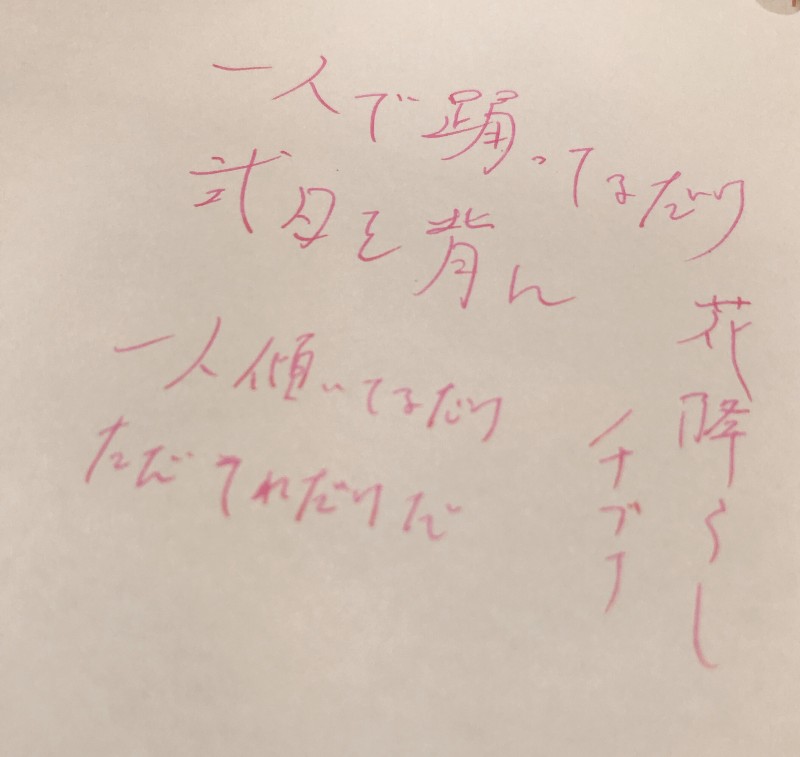 一人で踊ってるだけ
式日を背に
一人傾いてるだけ
ただそれだけだ
花降らし
ナブナ